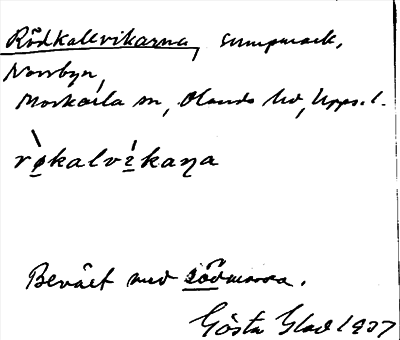 Rödkallvikarna, sumpmark,
Norrbyn,
Morkarla sn, Olands hd, Upps. l.
rø̀kalvíkaɳa
Beväxt med rödmossa.
Gösta Glad 1937